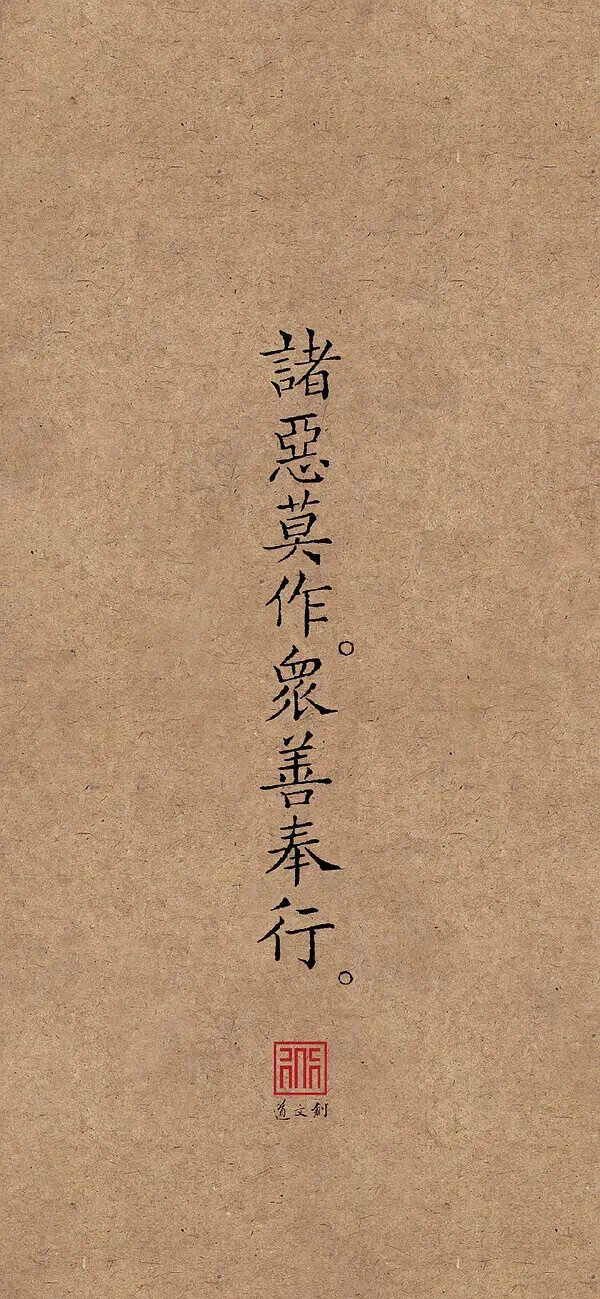 諸惡莫作。衆善奉行。
道文創